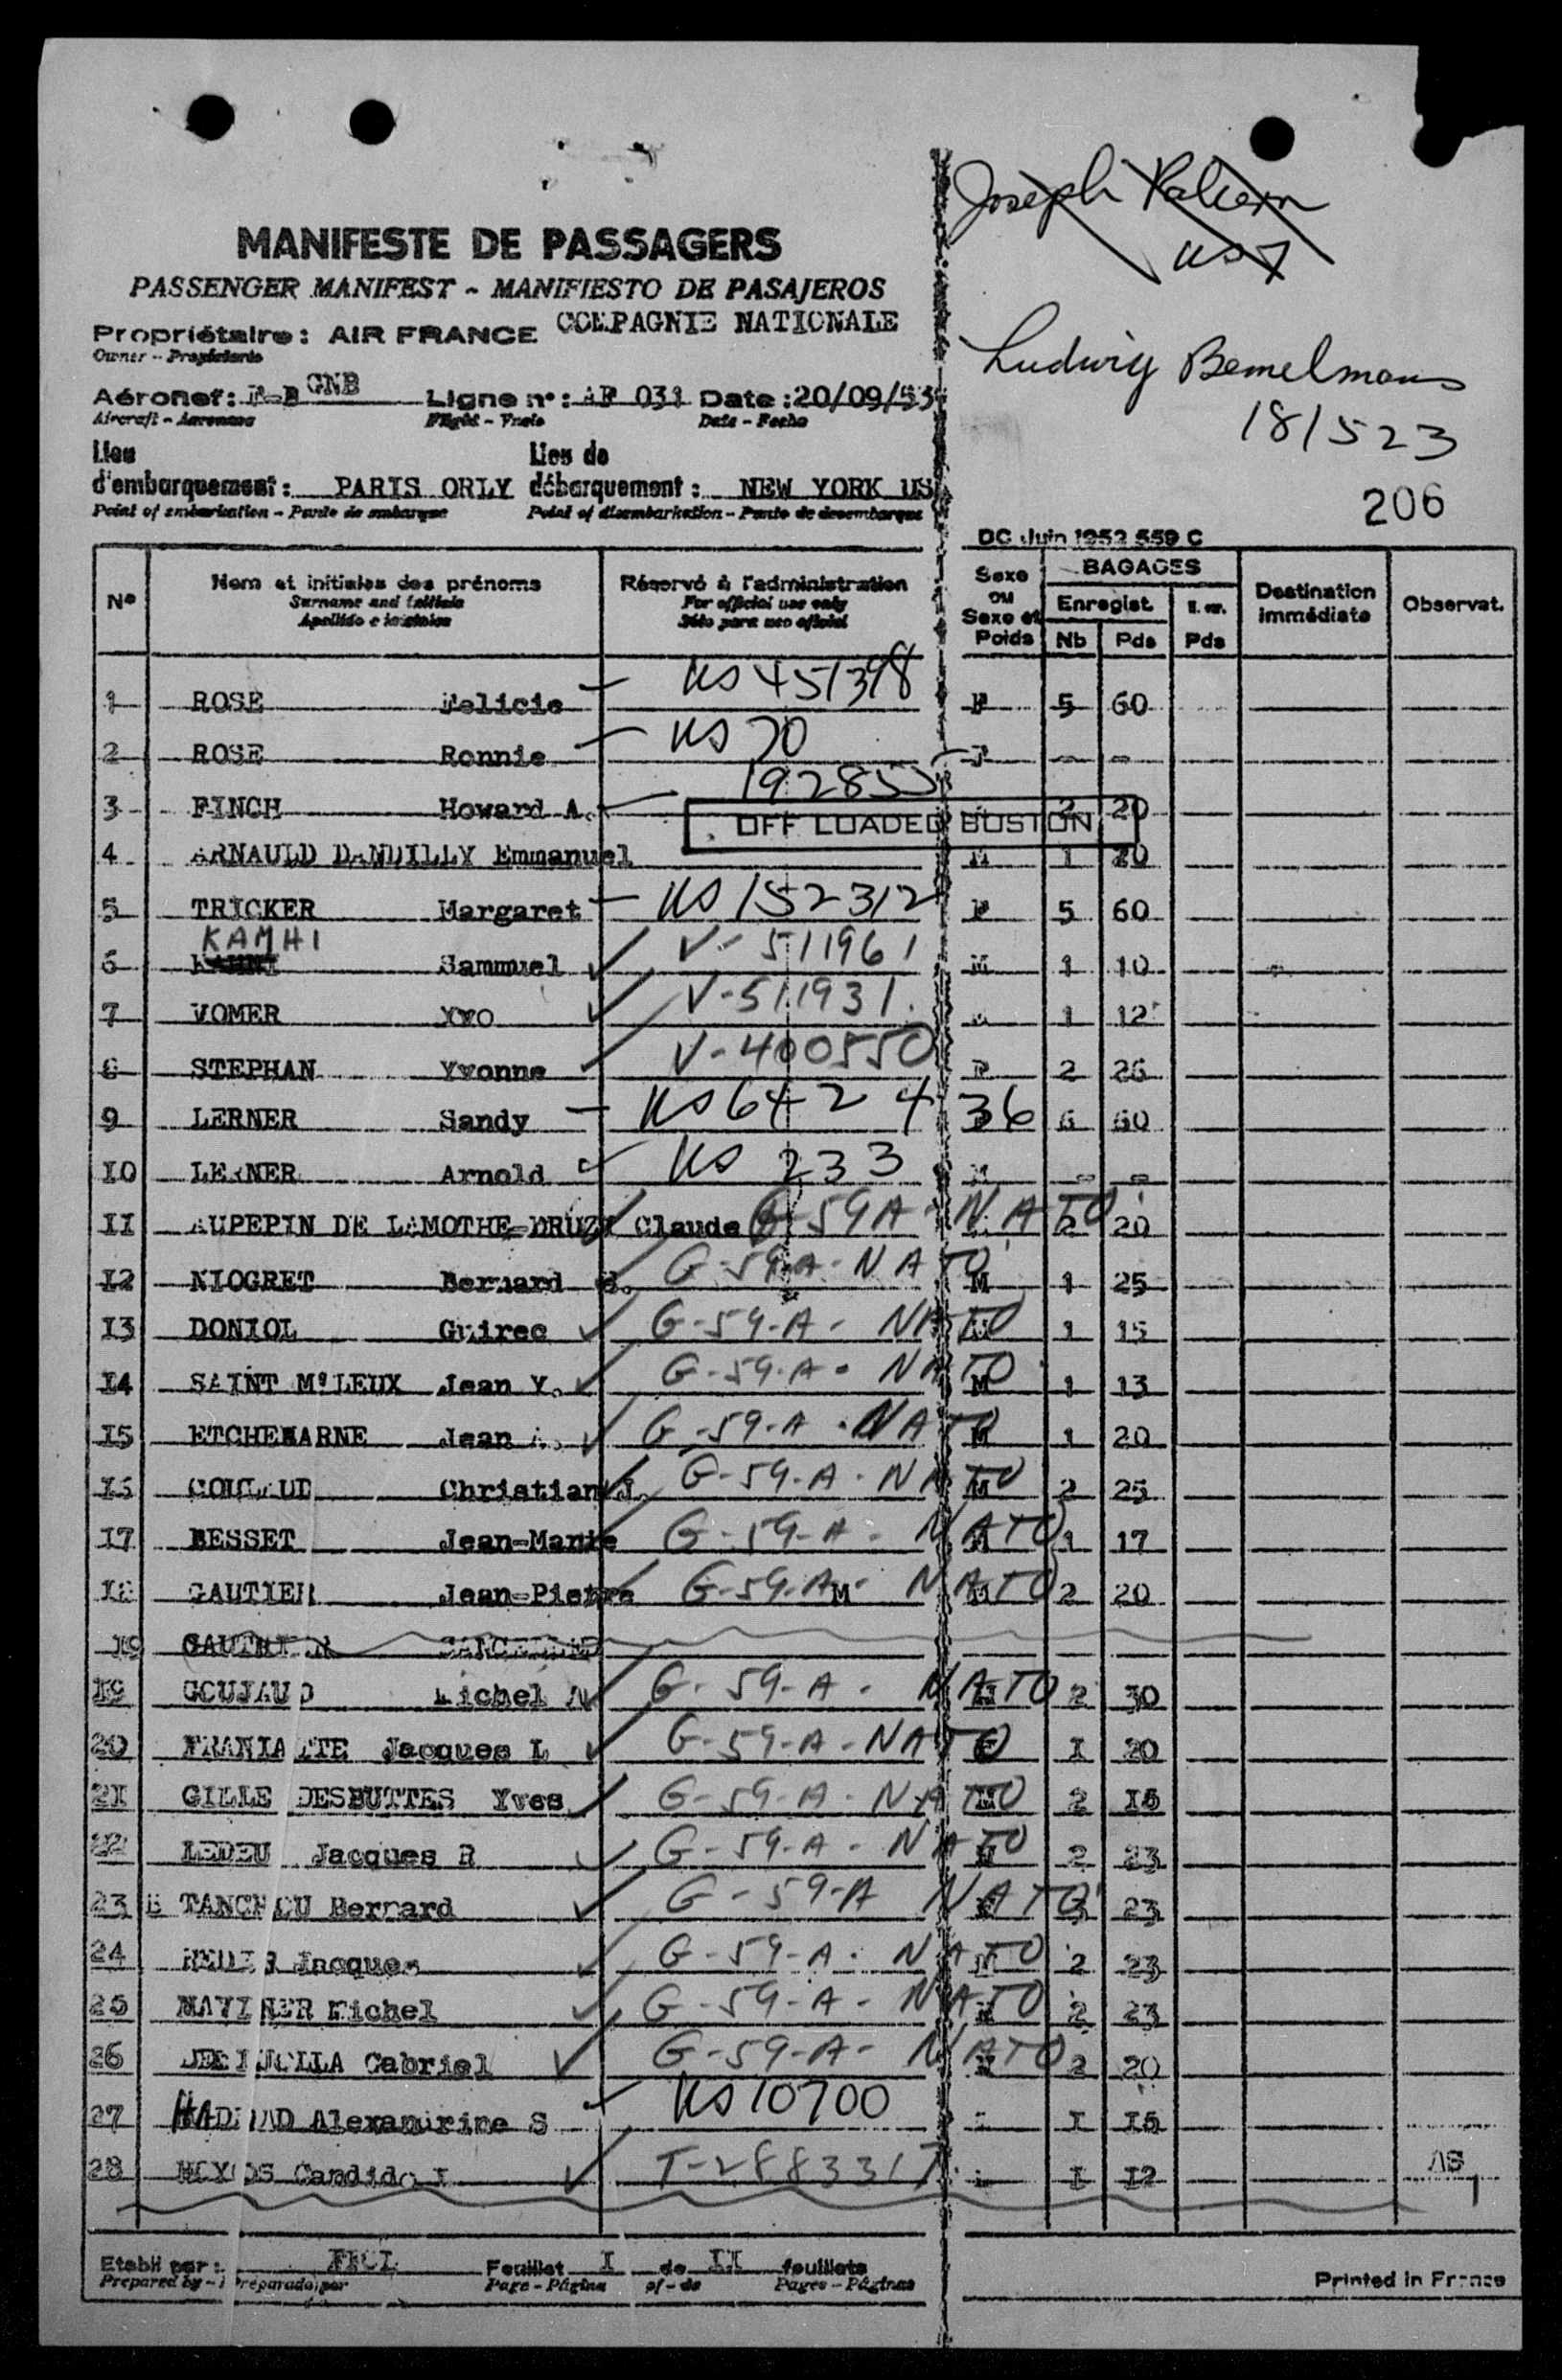 Joseph
US
MANIFESTE DE PASSAGERS
PASSENGER MANIFEST - MANIFIESTO DE PASAJEROS
Propriétaire : AIR FRANCE COMPAGNIE NATIONALE
Owner - Propietario
Ludwig Bemelmans
181523
206
Aéronef : GNB Ligne n° : AF 031 Date : 20/09/53
Aircraft - Aeronave Flight - Vuelo Date - Fecha
Lieu d'embarquement : PARIS ORLY Lieu de débarquement : NEW YORK US
Point of embarkation - Punto de embarque Point of disembarkation - Punto de desembarque
DC Juin 1952 559 C
N° Nom et initiales des prénoms Réservé à l'administration Sexe ou Sexe et Poids BAGAGES Destination immédiate Observat.
Surname and initials For official use only Enregist.
Apellido e iniciales Sólo para uso oficial Nb Pds Pds
1 ROSE Felicie - US 451398 F 5 60
2 ROSE Ronnie - US 70 - -
3 FINCH Howard A. - 192855 2 20
OFF LOADED BOSTON
4 ARNAULD DANDILLY Emmanuel M 1 20
5 TRICKER Margaret - US 152312 F 5 60
KAMHI
6 Sammuel V - 511961 M 1 10
7 VOMER Yvo V-511931 1 12
8 STEPHAN Yvonne V-400550 F 2 26
9 LERNER Sandy - US 6424 36 6 60
10 LERNER Arnold US 233 M - -
II AUPEPIN DE LAMOTHE-DRUZY Claude G-59A-NATO 2 20
I2 NIOGRET Bernard G-59-A-NATO M 1 25
I3 DONIOL Guirec G-59-A-NATO 1 15
I4 SAINT M°LEUX Jean Y. G-59-A-NATO M 1 13
I5 ETCHEBARNE Jean G-59-A-NATO M 1 20
I6 Christian J. G-59-A-NATO M 2 25
I7 BESSET Jean-Marie G-59-A-NATO 1 17
I8 GAUTIER Jean-Pierre G-59-A- M NATO M 2 20
I9
I9 GOUJAUD Michel G-59-A-NATO 2 30
20 FRANIATTE Jacques L G-59-A-NATO I 20
2I GILLE DESBUTTES Yves G-59-A-NATO M 2 I5
22 LEDEU Jacques R G-59-A-NATO 2 23
23 Bernard G-59-A NATO 23
24 Jacques G-59-A-NATO 2 23
25 Michel G-59-A-NATO 2 23
26 Gabriel G-59-A-NATO 2 20
27 HADDAD Alexandrine S US 10700 I I5
28 HOYOS Candido I T-2883317 I I2 AS
1
Etabli par : Feuillet I de II feuillets
Prepared by - Preparado por Page - Página of - de Pages - Páginas
Printed in France